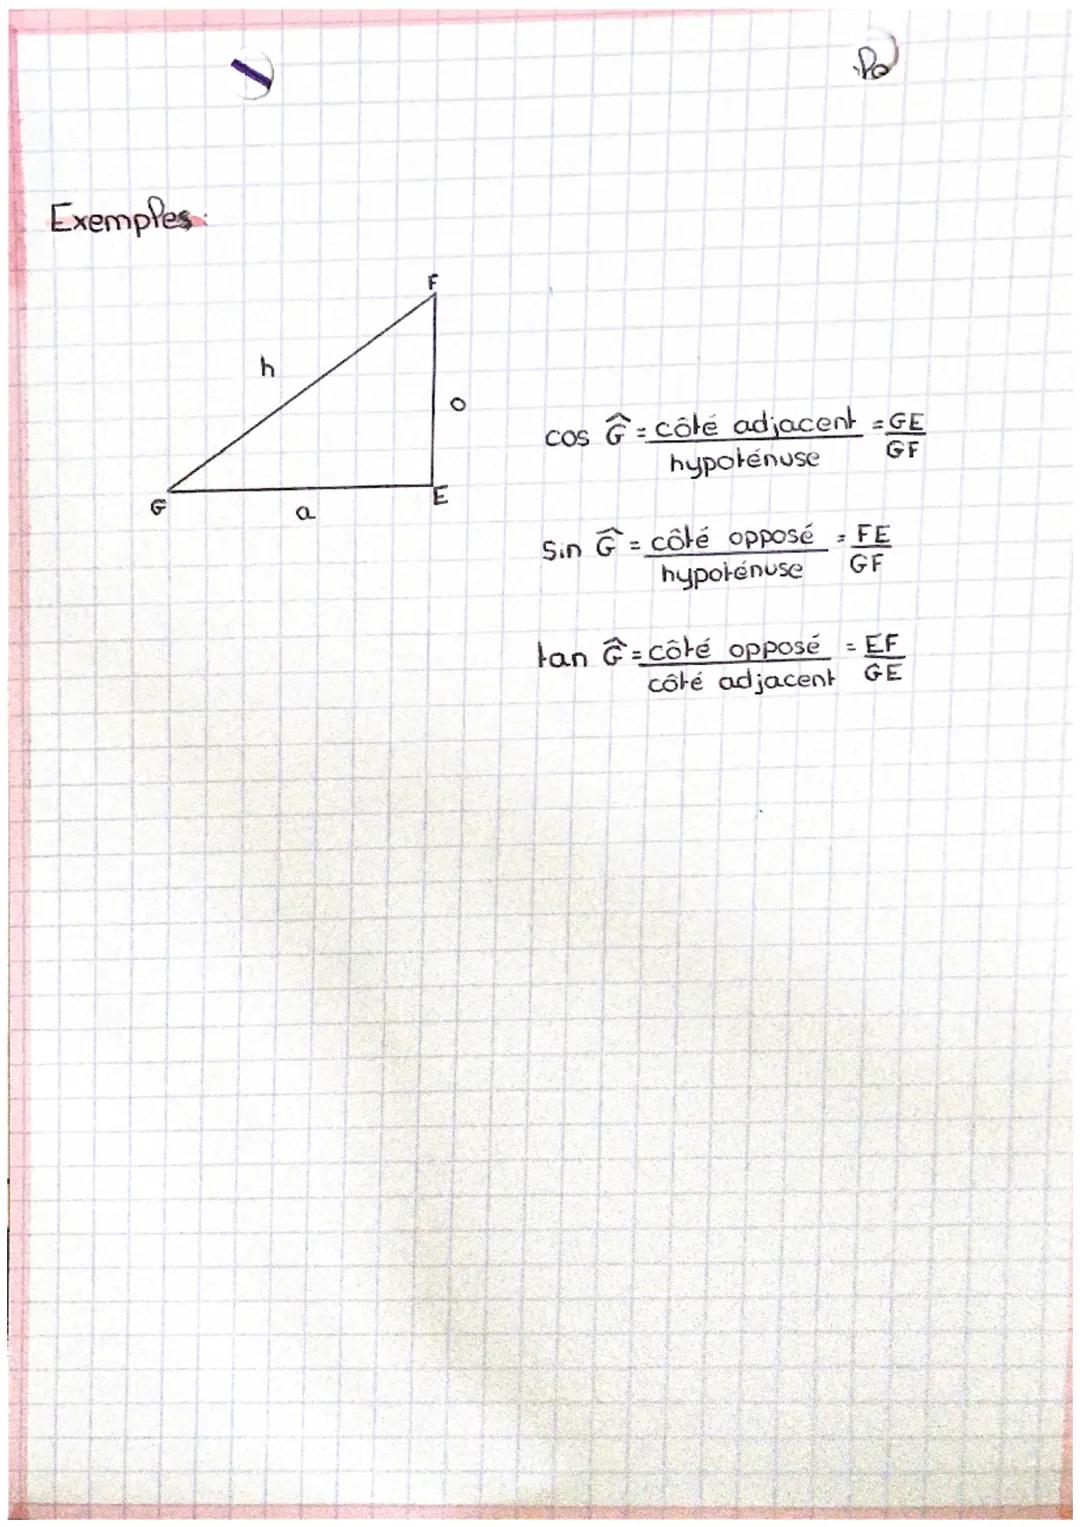 Exemples:
F
h
o
G
a
E
cos Ĝ = côté adjacent / hypoténuse = GE / GF
Sin Ĝ = côté opposé / hypoténuse = FE / GF
tan Ĝ = côté opposé / côté adjacent = EF / GE